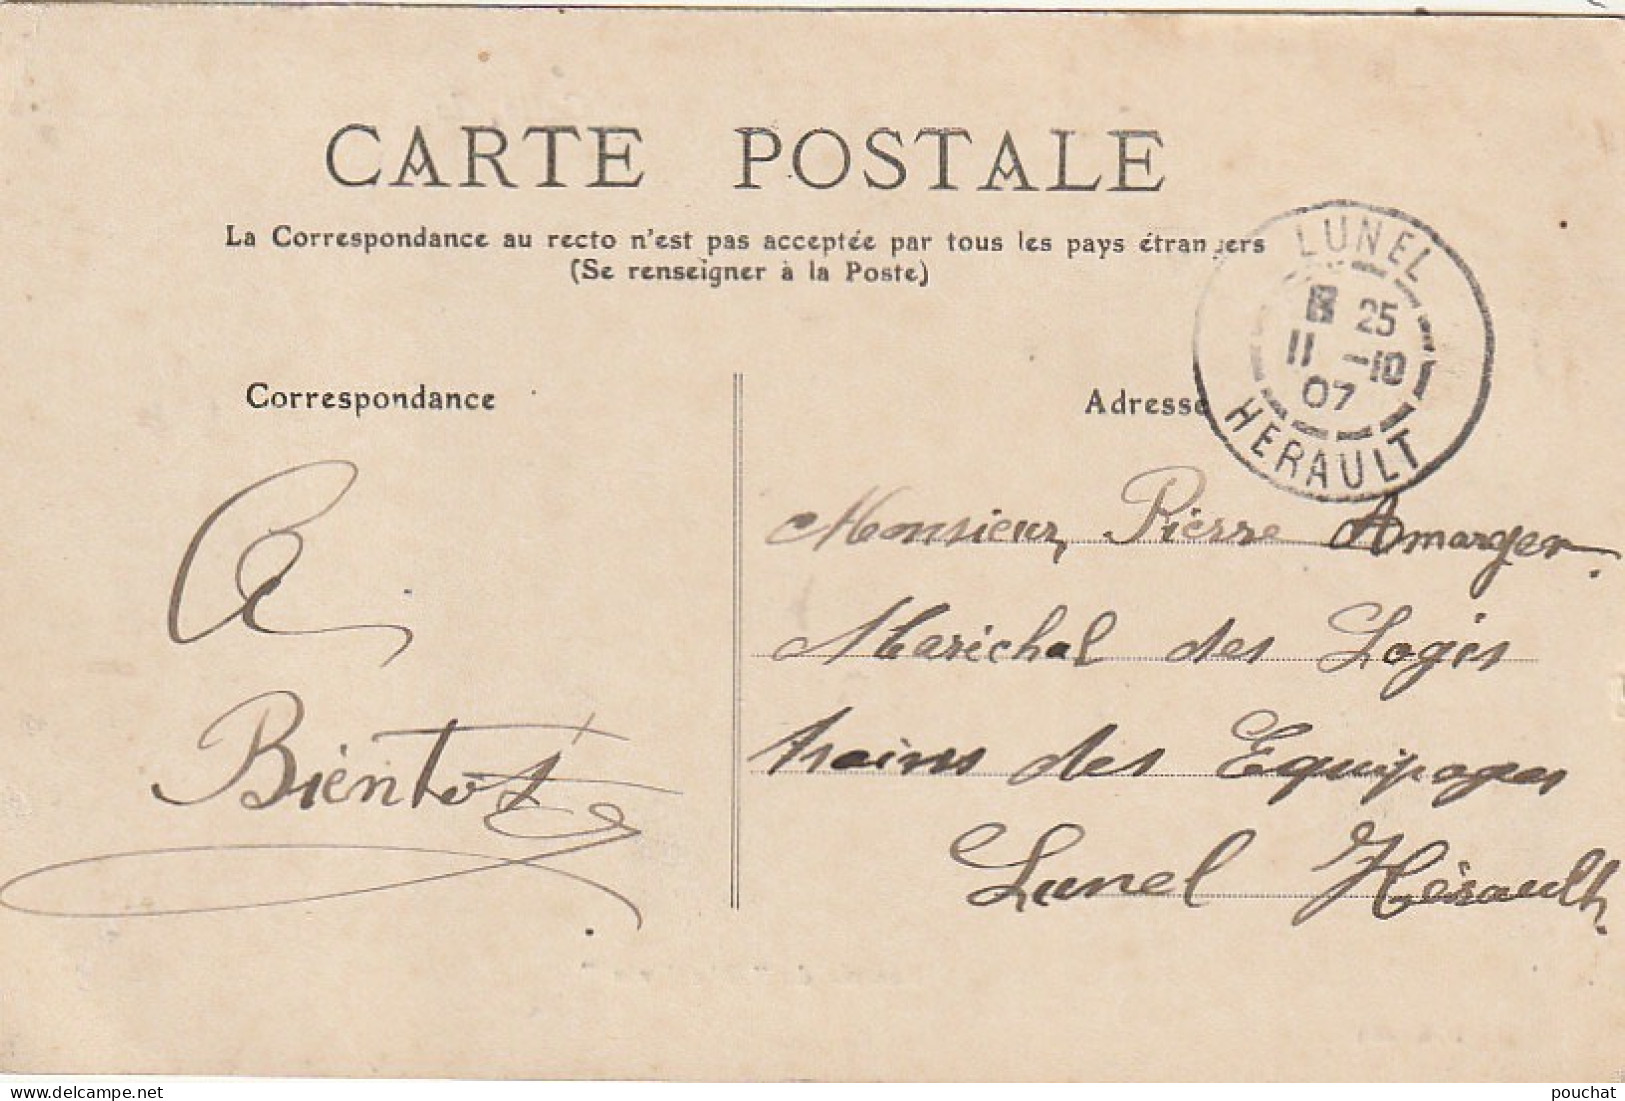 CARTE POSTALE
La Correspondance au recto n'est pas acceptée par tous les pays étrangers
(Se renseigner à la Poste)
LUNEL
25
11 -10
07
HERAULT
Correspondance
A
Bientot
Adresse
Monsieur Pierre Amarger.
Marechal des Logis
trains des Equipages
Lunel Hérault.
www.delcampe.net
pouchat